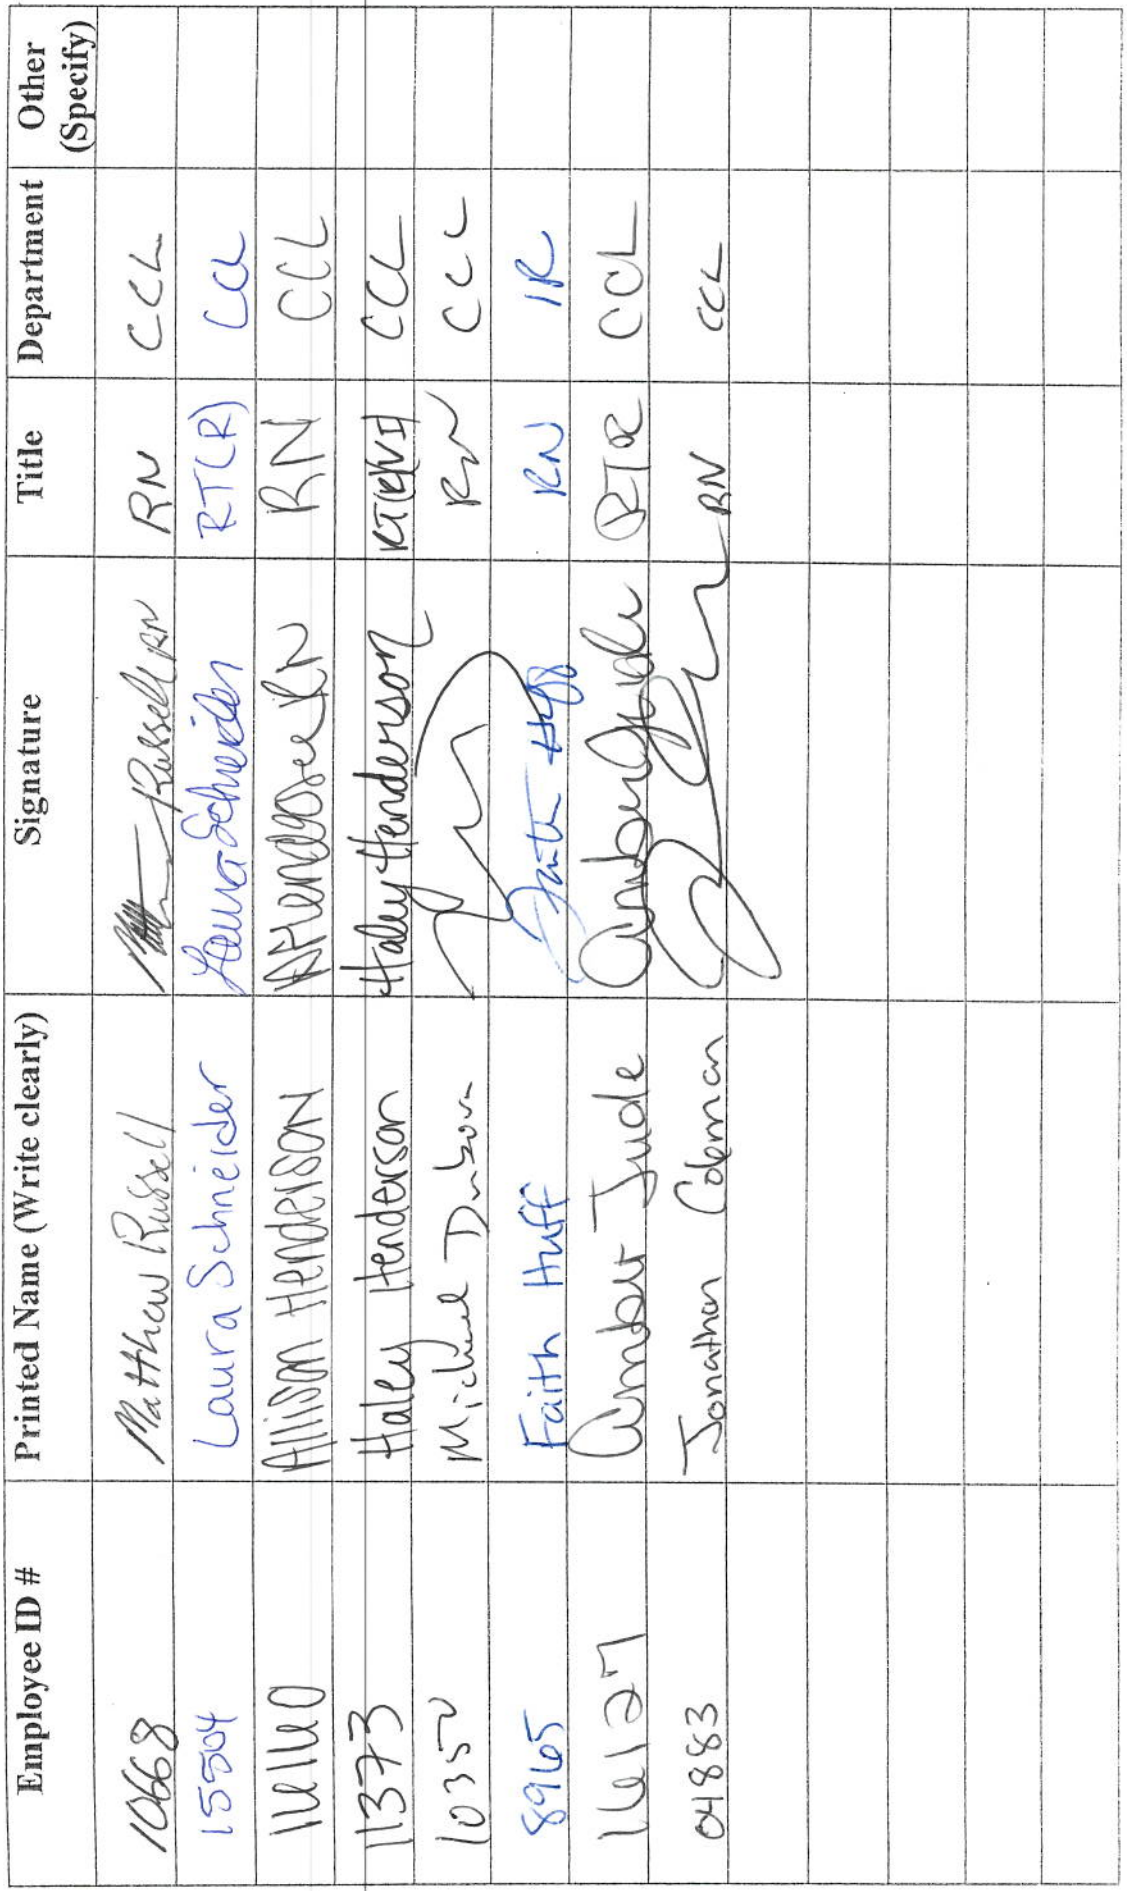 Employee ID # Printed Name (Write clearly) Signature Title Department Other (Specify)
10668 Matthew Russell Matt Russell RN RN CCL
15504 Laura Schneider Laura Schneider RT(R) CCL
Allison Henderson AHenderson RN RN CCL
11373 Haley Henderson Haley Henderson CCL
10350 Michael RN CCL
8965 Faith Huff Faith Huff RN IR
16127 Amber Jude Amber Jude RTR CCL
04883 Jonathan Coleman RN CCL